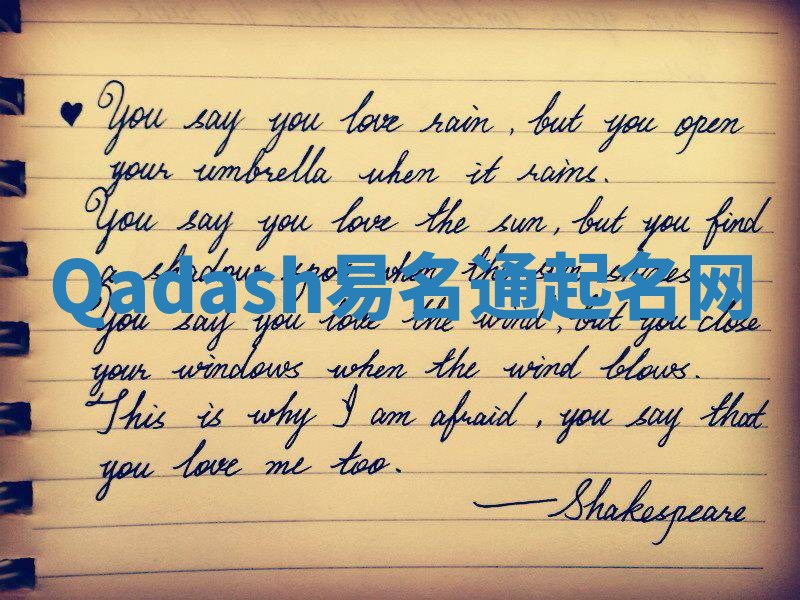 ♥ You say you love rain, but you open
your umbrella when it rains.
You say you love the sun, but you find
a shadow spot when the sun shines
Qadash易名通起名网
You say you love the wind, but you close
your windows when the wind blows.
This is why I am afraid, you say that
you love me too.
—Shakespeare